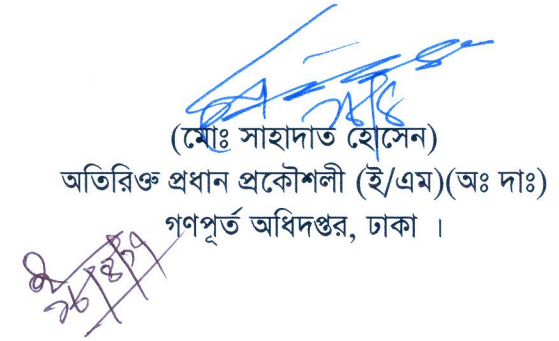 (মোঃ সাহাদাত হোসেন)
অতিরিক্ত প্রধান প্রকৌশলী (ই/এম)(অঃ দাঃ)
গণপূর্ত অধিদপ্তর, ঢাকা ।